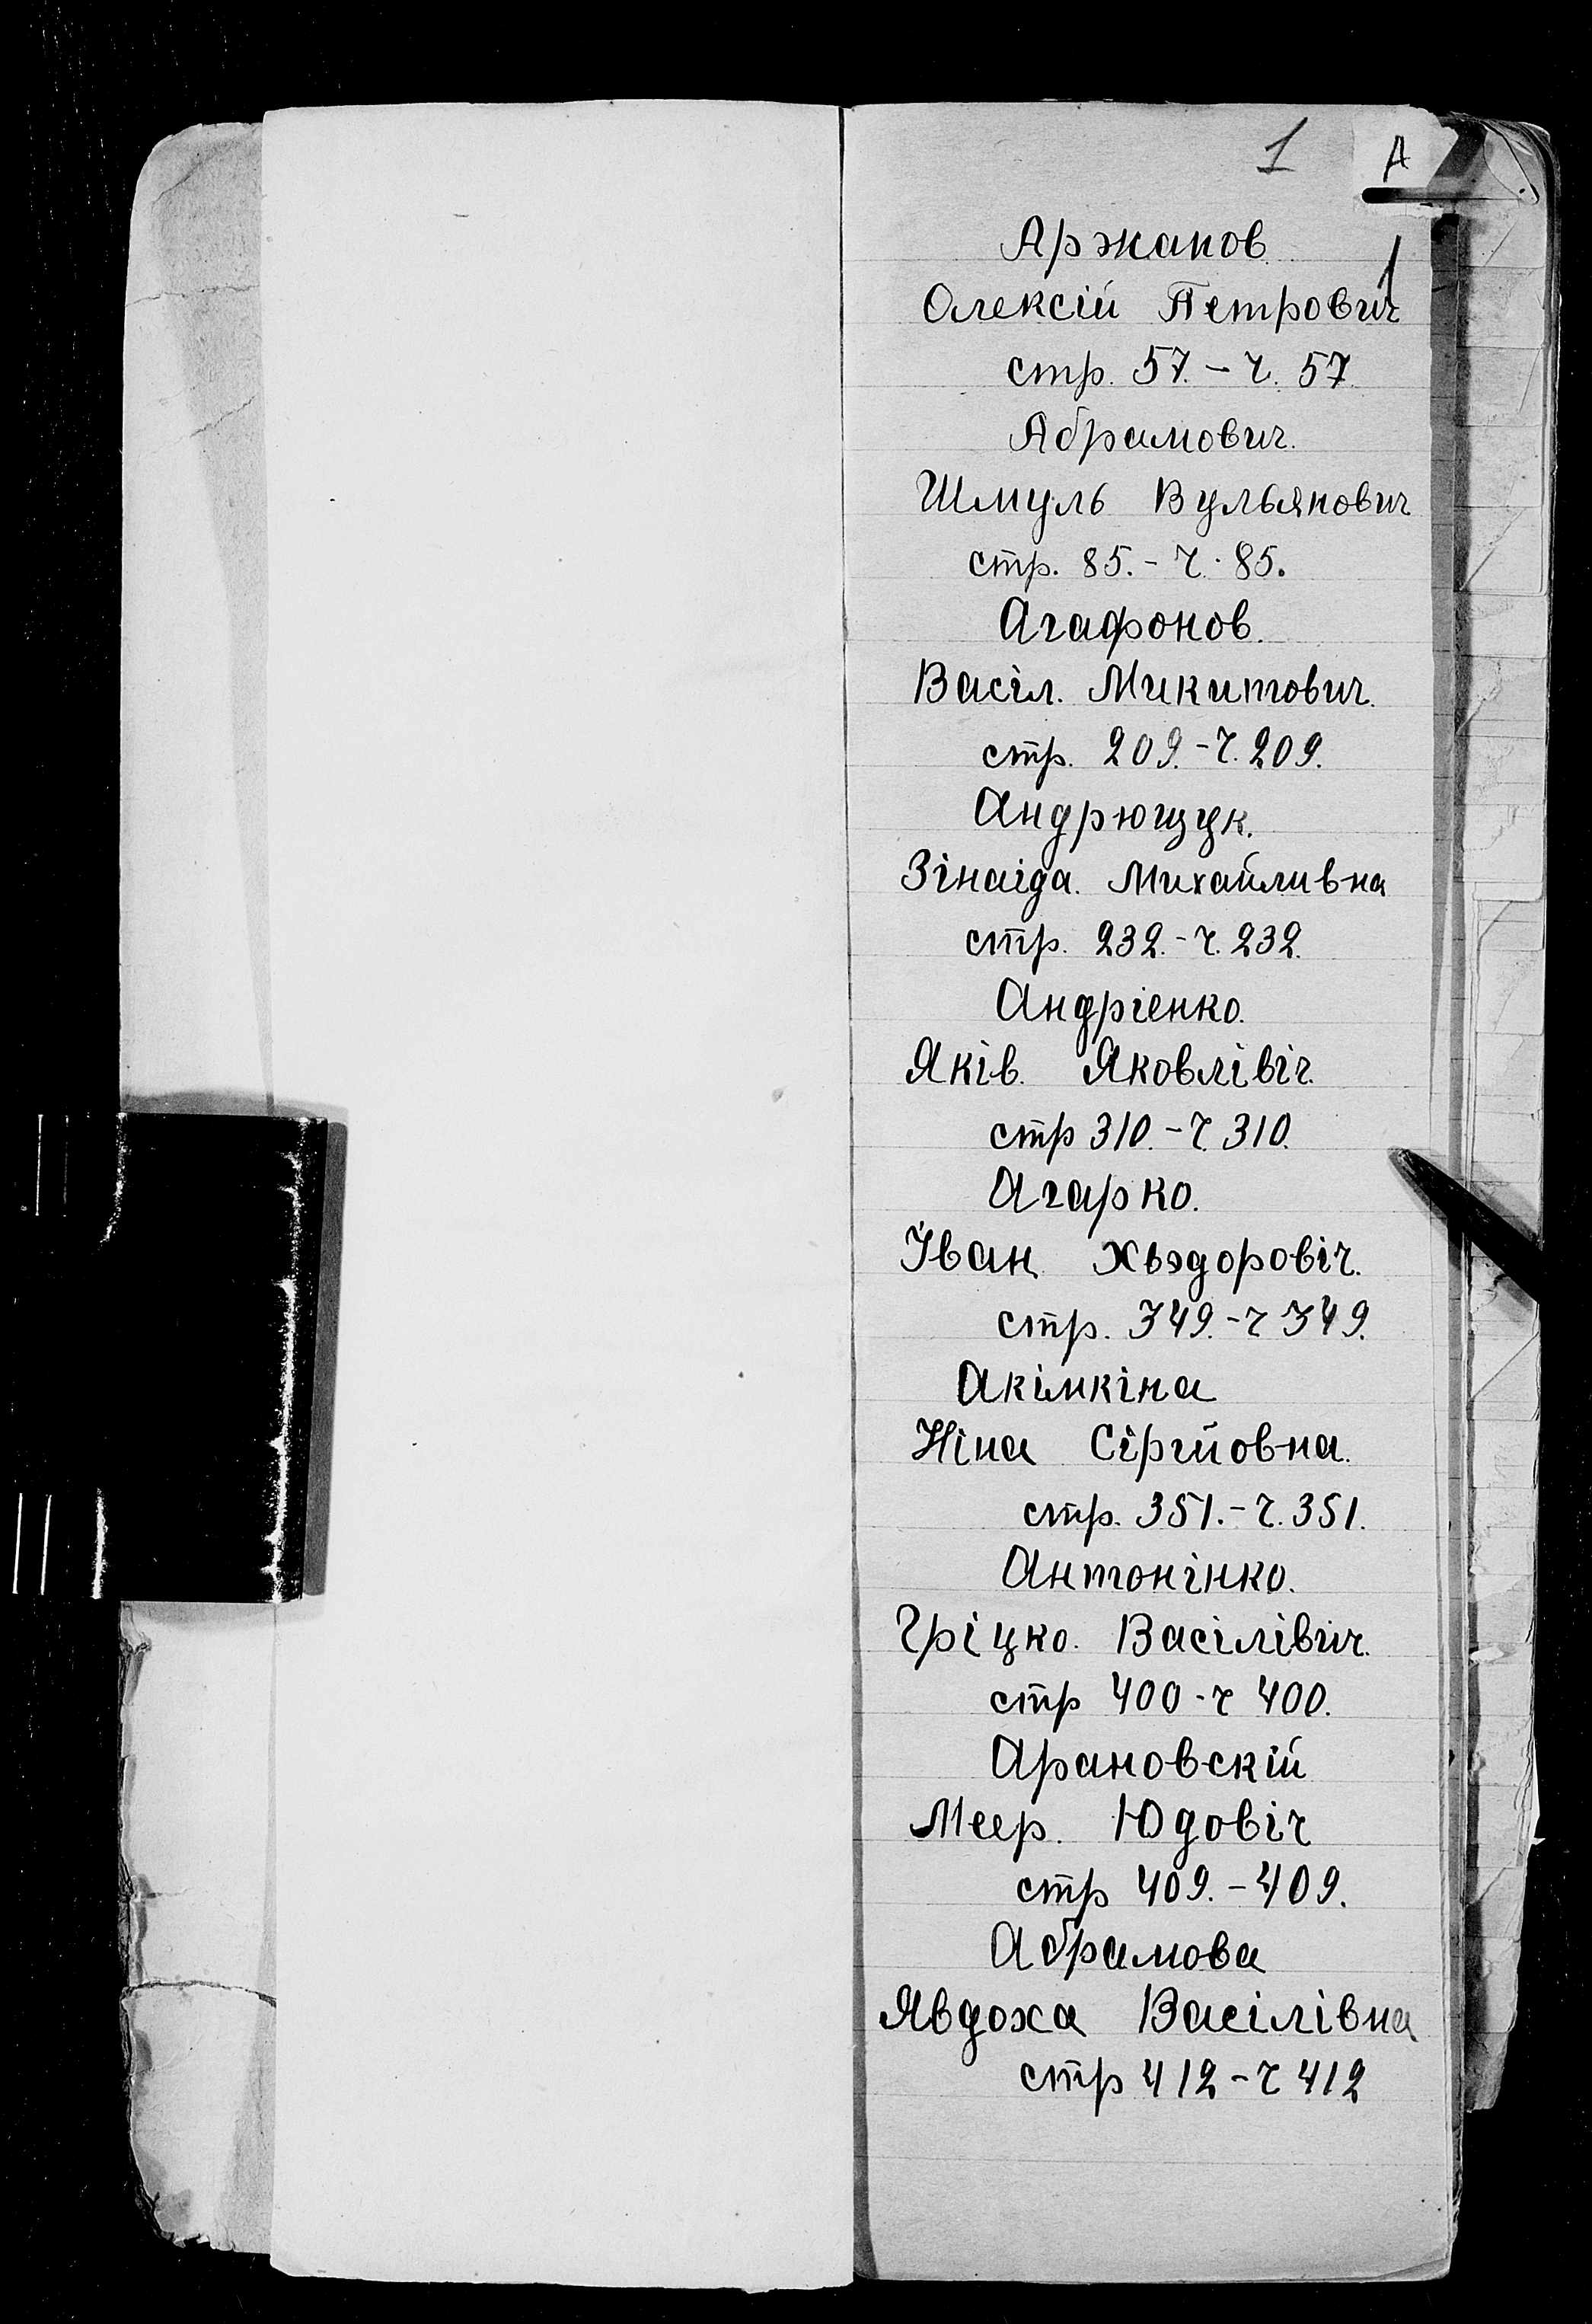 1 А
Аржанов.
1
Олексій Петрович
стр. 57. - ч. 57
Абрамович.
Шмуль Вульянович
стр. 85. - ч. 85.
Агафонов.
Васіл. Микитович.
стр. 209. - ч. 209.
Андрющук.
Зінаіда. Михайливна
стр. 232. - ч. 232.
Андріенко.
Яків. Яковлівіч.
стр 310. - ч. 310.
Агарко.
Іван Хьэдоровіч.
стр. 349. - ч 349.
Акімкіна
Ніна Сіргійовна.
стр. 351. - ч. 351.
Антонінко.
Гріцко. Васілівич.
стр 400 - ч 400.
Арановскій
Меер. Юдовіч
стр 409. - 409.
Абрамова
Явдоха Васілівна
стр 412 - ч 412